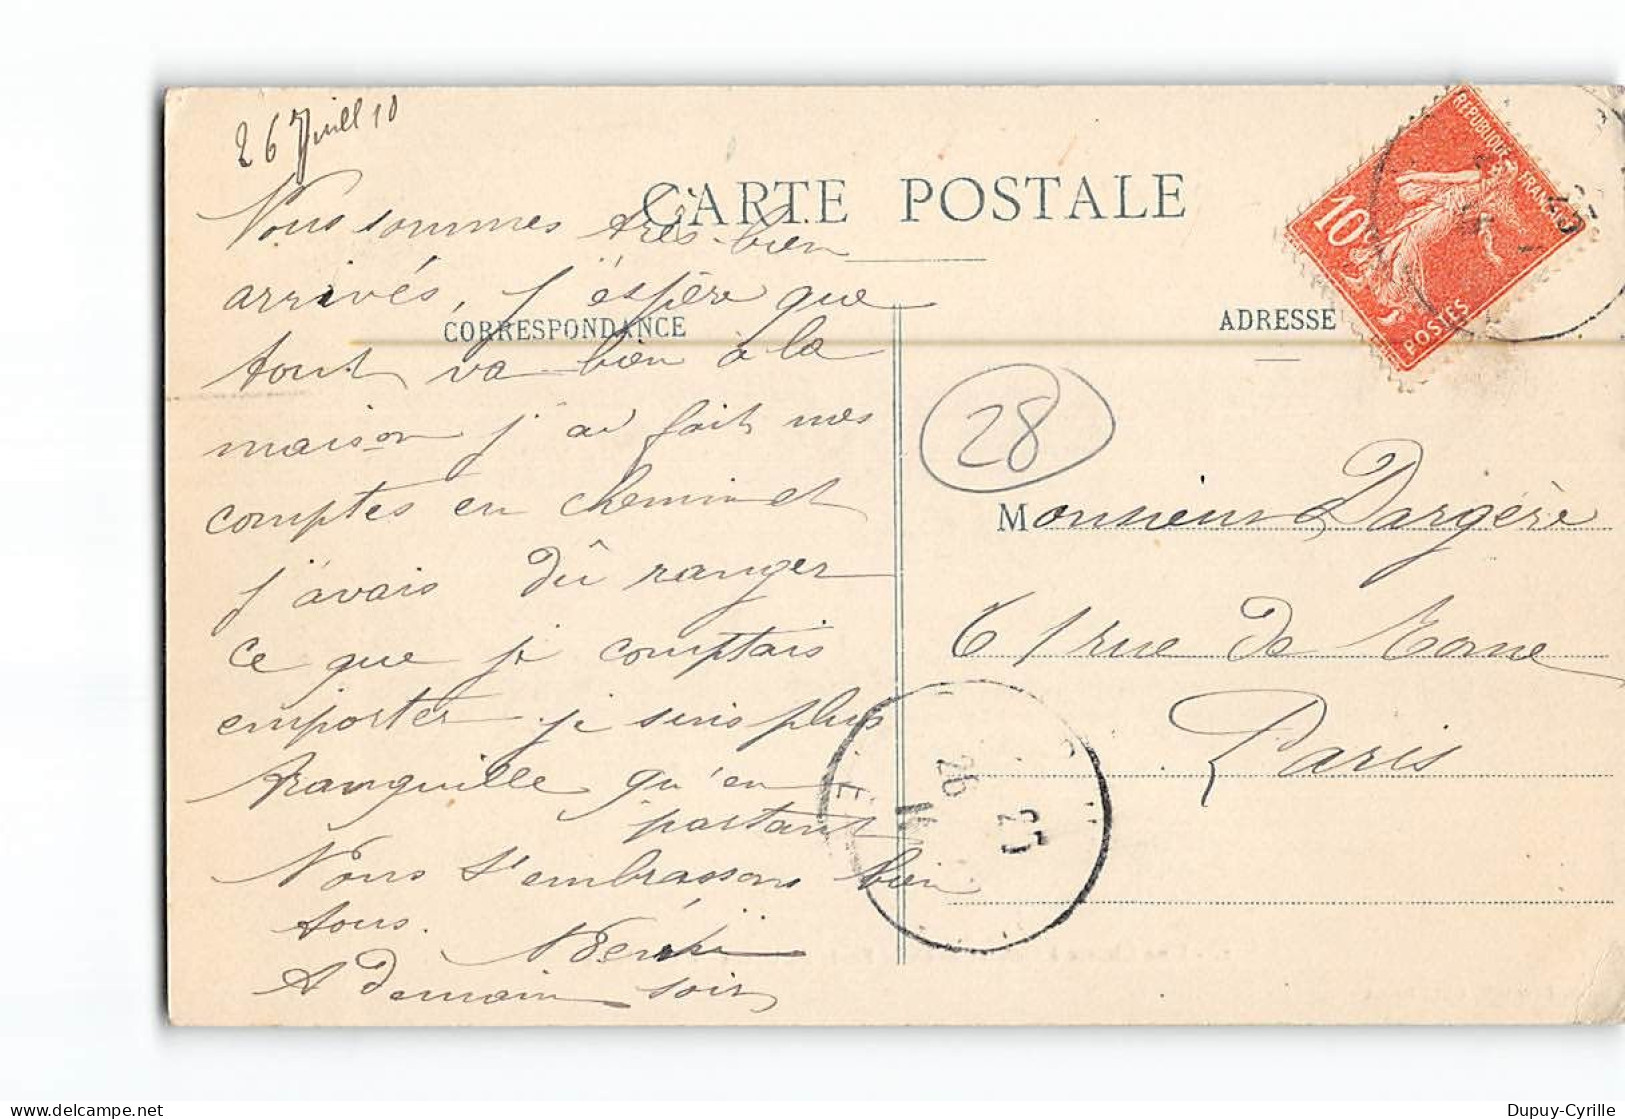 26 Juill 10
CARTE POSTALE
CORRESPONDANCE
ADRESSE
REPUBLIQUE FRANÇAISE
10c
POSTES
Nous sommes très bien
arrivés, j'éspère que
tout va bien à la
maison j'ai fait mes
comptes en chemin et
j'avais dû ranger
ce que je comptais
emporter je suis plus
tranquille qu'en
partant
Nous t'embrassons bien
tous.
A demain soir
28
Monsieur Dargère
61 rue de Rome
Paris
26
Dupuy-Cyrille